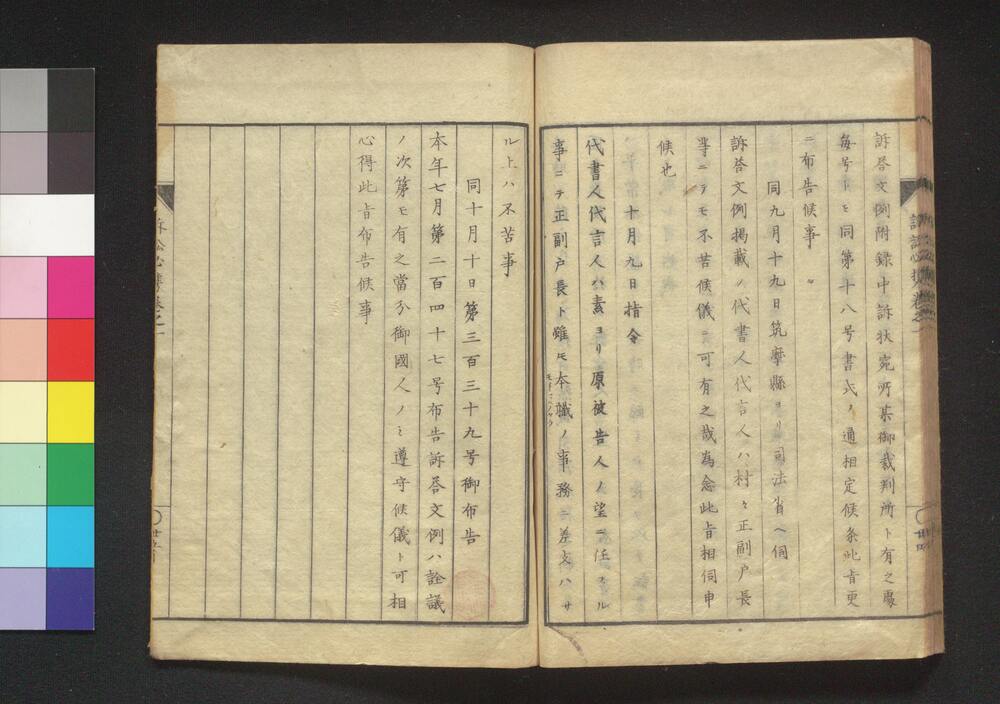 訴答文例附録中訴状宛所某御裁判所ト有之處
毎号トモ同第十八号書式ノ通相定候条此旨更
ニ布告候事
同九月十九日筑摩縣ヨリ司法省ヘ伺
訴答文例掲載ノ代書人代言人ハ村々正副戸長
等ニテモ不苦候儀ニ可有之哉為念此旨相伺申
候也
十月九日指令
代書人代言人ハ素ヨリ原被告人ノ望ニ任スル
事ニテ正副戸長ト雖モ本職ノ事務ニ差支ハサ
ル上ハ不苦事
同十月十日第三百三十九号御布告
本年七月第二百四十七号布告訴答文例ハ詮議
ノ次第モ有之當分御國人ノミ遵守候儀ト可相
心得此旨布告候事